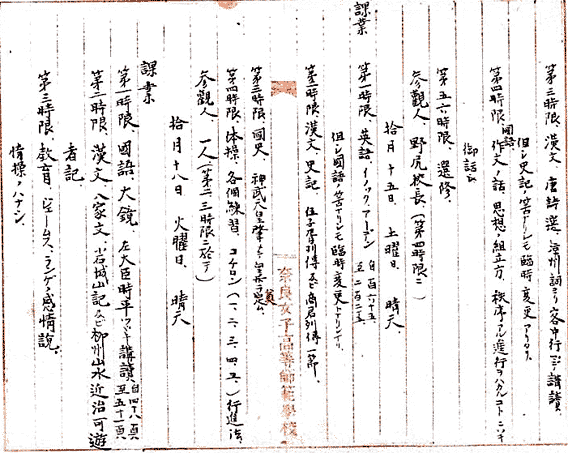 第三時限、漢文、唐詩選、涼州詞ヨリ客中行マデ講讀、
但シ史記ノ筈ナリシモ臨時変更アリタリ、
第四時限、國語、作文ノ話、思想ノ組立方、秩序アル進行ヲハカルコトニツキ
御話シ
第五六時限、選修、
参觀人、野尻校長(第四時限ニ)
拾月十五日、土曜日、晴天
課業
第一時限、英語、イノックアーデン
但シ國語ノ筈ナリシモ臨時変更トナリシナリ、
第二時限、漢文、史記、伍子胥列傳及ビ商君列傳一節、
奈良女子高等師範學校
第三時限、國史、神武天皇
第四時限、体操、各個練習、コチロン(一、二、三、四、五、)行進法、
参觀人 一人(第二三時限ニ於テ)
拾月十八日、火曜日、晴天
課業
第一時限、國語、大鏡、左大臣時平 講讀 自四十八頁 至五十一頁
第二時限、漢文、八家文、小石城山記及ビ柳州山水近治可遊
者記
第三時限、教育、ジェームス、ランゲノ感情説、
情操ノハナシ、